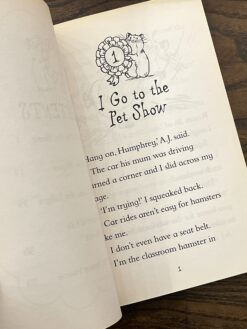 1
I Go to the
Pet Show
Hang on, Humphrey,' A.J. said.
The car his mum was driving
turned a corner and I slid across my
'I'm trying!' I squeaked back.
Car rides aren't easy for hamsters
like me.
I don't even have a seat belt.
I'm the classroom hamster in
1